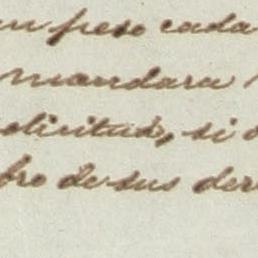 un peso cada
mandara
solicitud, si
bro de sus der